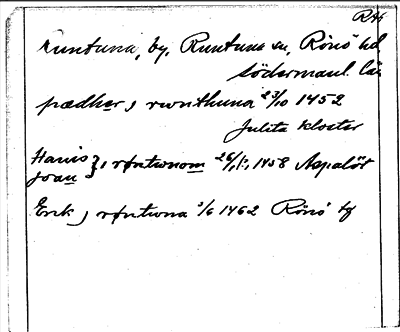 RAÄ
Runtuna, by, Runtuna sn, Rönö hd
Södermanl. län
pædher, rwnthuna 23/10 1452
Julita kloster
Hanis
Joan }, røntwnom 26/1, 1458 Aspalöt
Erik, røntwna 3/6 1462 Rönö tg